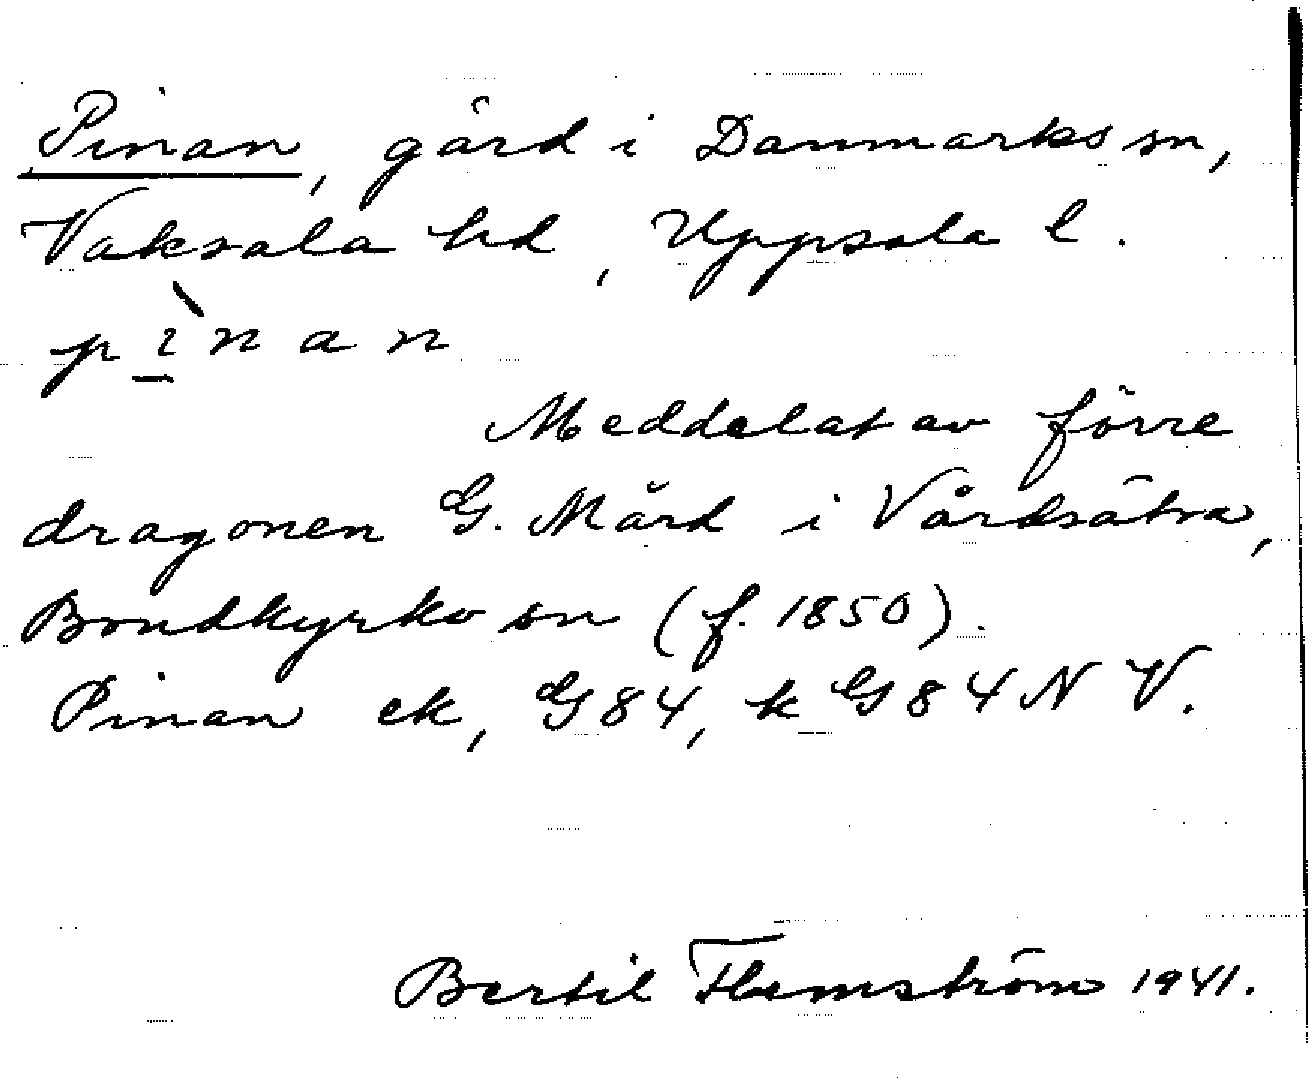 Pinan, gård i Danmarks sn,
Vaksala hd, Uppsala l.
pìnan
Meddelat av förre
dragonen G. Mård i Vårdsätra,
Bondkyrko sn (f. 1850).
Pinan ek, G84, k G84 N V.
Bertil Flemström 1941.